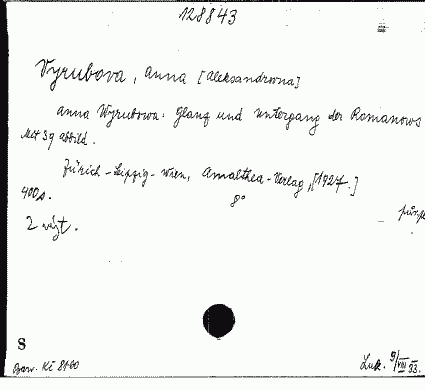 128843
Vyrubova, Anna [Aleksandrovna]
Anna Wyrubowa: Glanz und Untergang der Romanows
Mit 39 Abbild.
Zürich-Leipzig-Wien, Amalthea-Verlag, [1927.]
400 s. 8°
2 vyt.
S
Luk. 9/VIII 33.